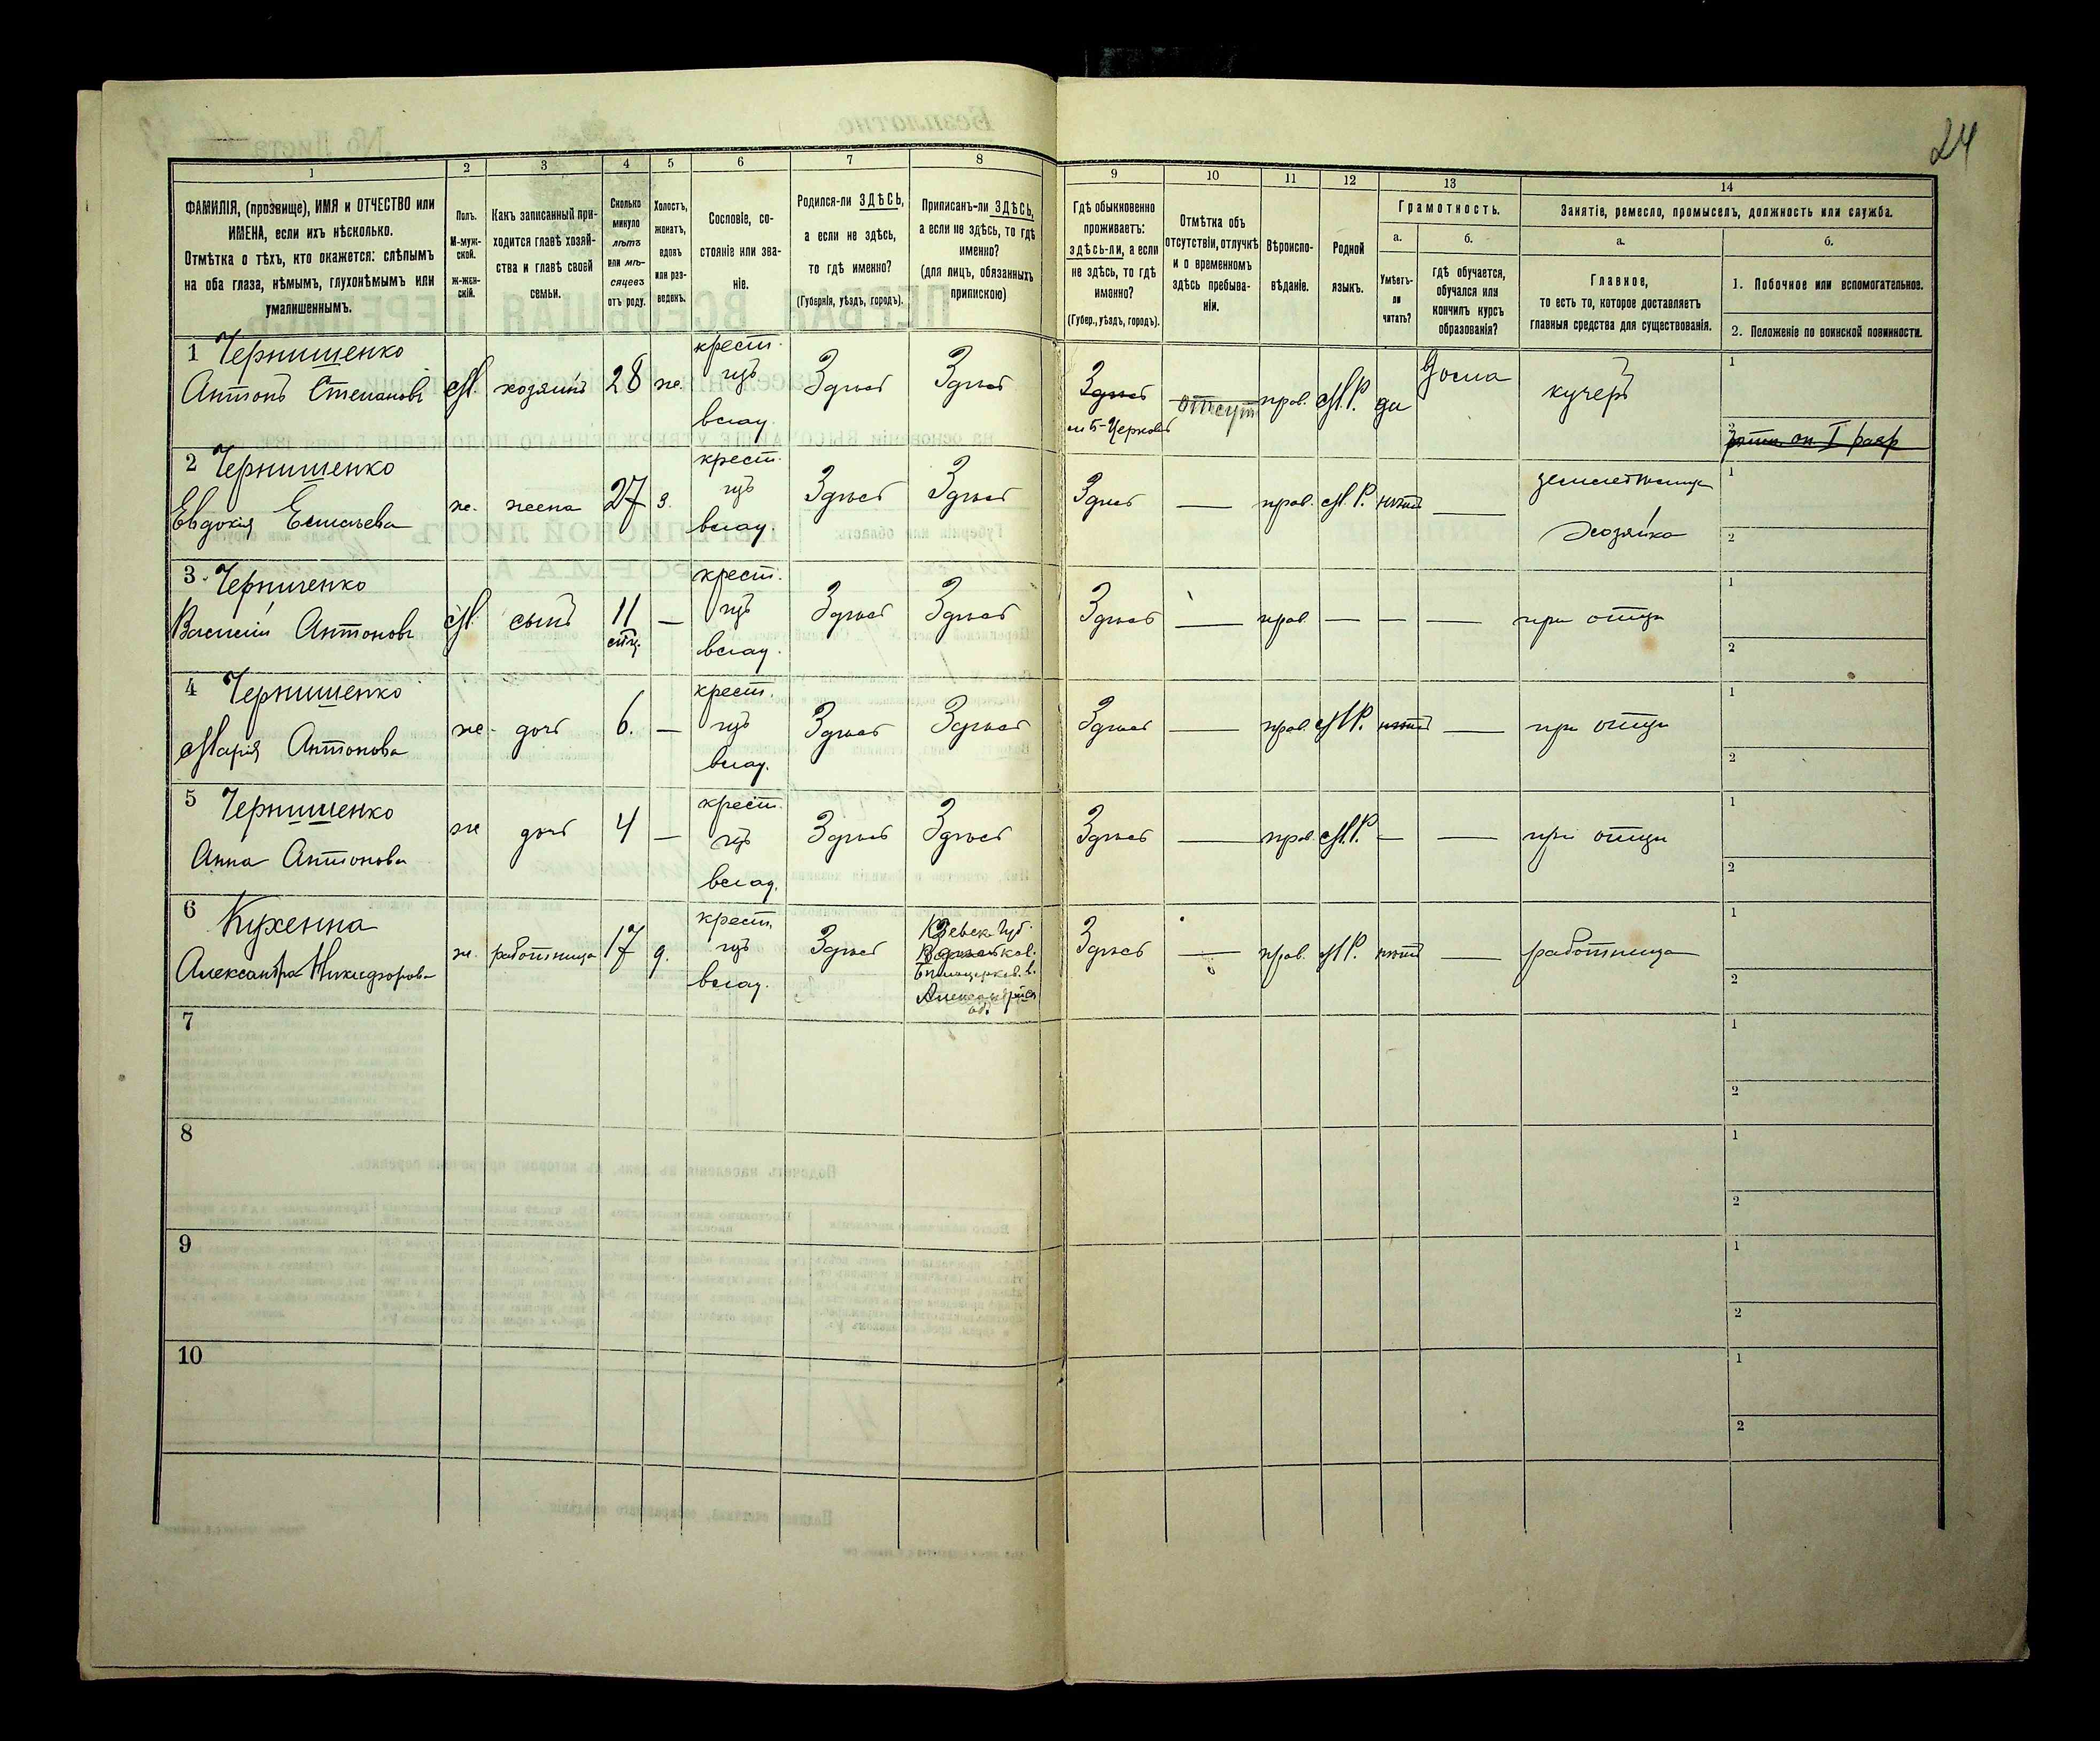 24
1 2 3 4 5 6 7 8 9 10 11 12 13 14
ФАМИЛІЯ, (прозвище), ИМЯ и ОТЧЕСТВО или
ИМЕНА, если ихъ нѣсколько.
Отмѣтка о тѣхъ, кто окажется: слѣпымъ
на оба глаза, нѣмымъ, глухонѣмымъ или
умалишеннымъ.
Полъ.
М-муж-
ской.
Ж-жен-
скій.
Какъ записанный при-
ходится главѣ хозяй-
ства и главѣ своей
семьи.
Сколько
минуло
лѣтъ
или мѣ-
сяцевъ
отъ роду.
Холостъ,
женатъ,
вдовъ
или раз-
веденъ.
Сословіе, со-
стояніе или зва-
ніе.
Родился-ли ЗДѢСЬ,
а если не здѣсь,
то гдѣ именно?
(Губернія, уѣздъ, городъ).
Приписанъ-ли ЗДѢСЬ,
а если не здѣсь, то гдѣ
именно?
(для лицъ, обязанныхъ
припискою)
Гдѣ обыкновенно
проживаетъ:
здѣсь-ли, а если
не здѣсь, то гдѣ
именно?
(Губер., уѣздъ, городъ).
Отмѣтка объ
отсутствіи, отлучкѣ
и о временномъ
здѣсь пребыва-
ніи.
Вѣроиспо-
вѣданіе.
Родной
языкъ.
Грамотность.
а.
Умѣетъ-
ли
читать?
б.
гдѣ обучается,
обучался или
кончилъ курсъ
образованія?
Занятіе, ремесло, промыселъ, должность или служба.
а.
Главное,
то есть то, которое доставляетъ
главныя средства для существованія.
б.
1. Побочное или вспомогательное.
2. Положеніе по воинской повинности.
1 Чернишенко
Антонъ Степановъ
М. хозяинъ 28 ж.
крест.
изъ
влад.
Здѣсь Здѣсь Здѣсь
м Б-Церковь
отсут прав. М.Р. да Дома кучеръ
1
2
2 Чернишенко
Евдокія
ж. жена 27 з.
крест.
изъ
влад.
Здѣсь Здѣсь Здѣсь — прав. М.Р. нѣтъ —
Хозяйка
1
2
3 Черниченко
Василій Антоновъ
М. сынъ 11 —
крест.
изъ
влад.
Здѣсь Здѣсь Здѣсь — прав. — — — при отцѣ
1
2
4 Чернишенко
Марія Антонова
ж. дочь 6. —
крест.
изъ
влад.
Здѣсь Здѣсь Здѣсь — прав. М.Р. нѣтъ — при отцѣ
1
2
5 Чернишенко
Анна Антонова
ж дочь 4 —
крест.
изъ
влад.
Здѣсь Здѣсь Здѣсь — прав. М.Р. — — при отцѣ
1
2
6 Кухенна
Александра Никифорова
ж. работница 17 д.
крест.
изъ
влад.
Здѣсь
Кіевск. губ.
Бѣлоцерков. в.
Здѣсь — прав. М.Р. нѣтъ — работница
1
2
7
1
2
8
1
2
9
1
2
10
1
2